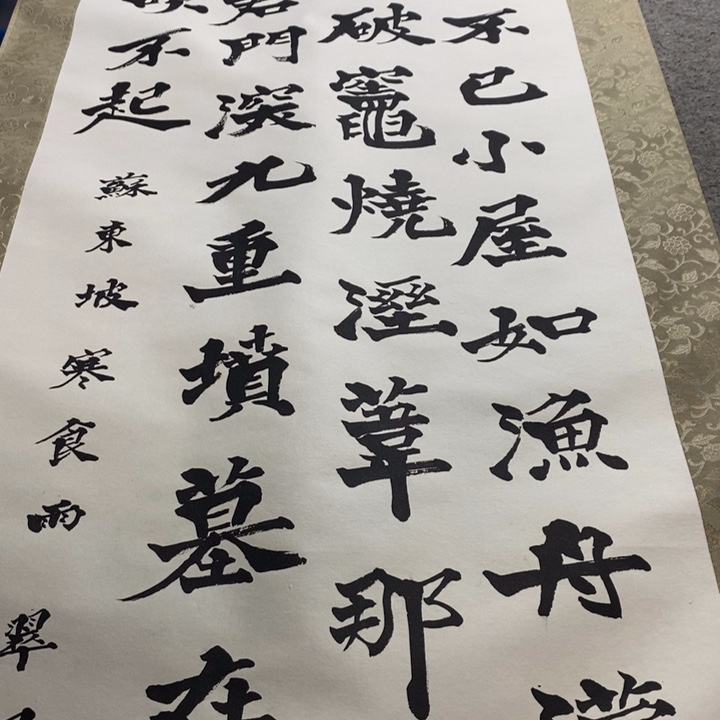 不已小屋如漁舟濛
破竈燒溼葦那
君門深九重墳墓在
吹不起
蘇東坡寒食雨
翠